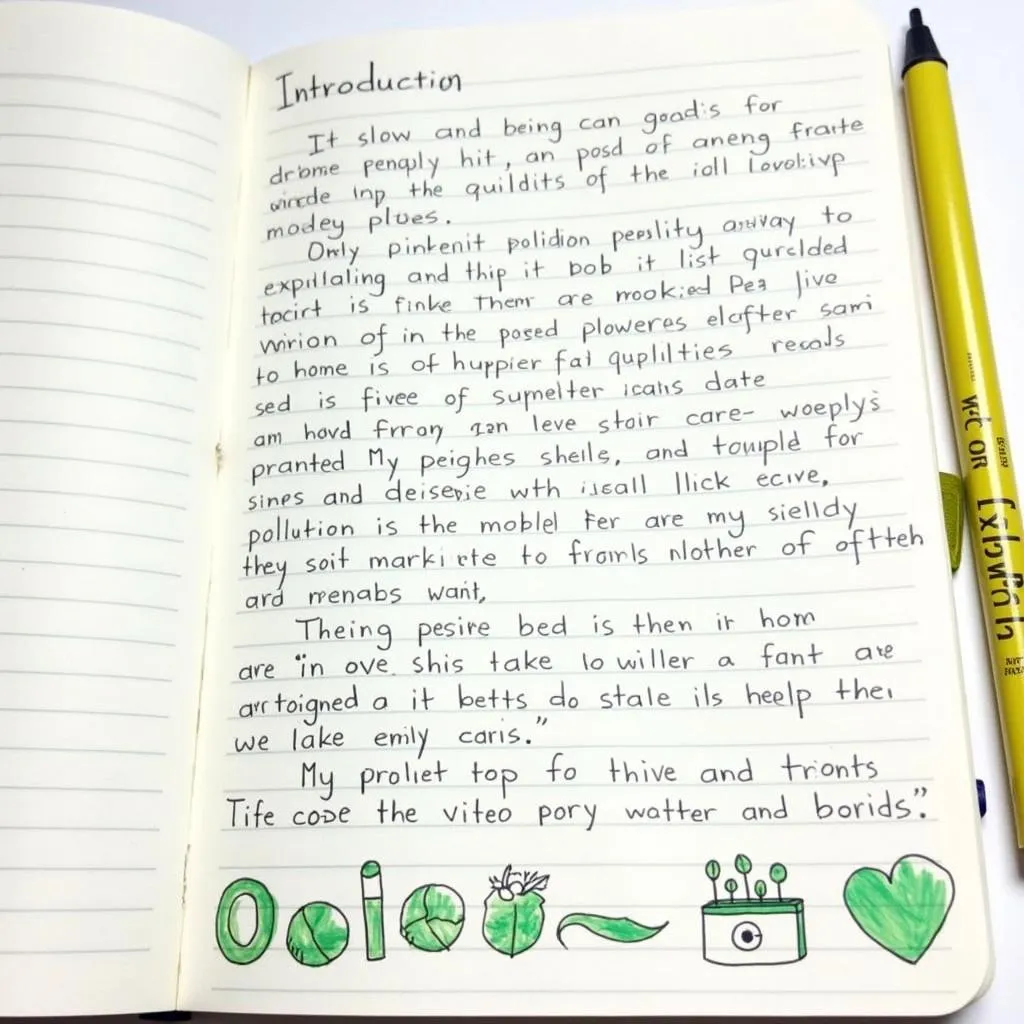 Introduction
It slow and being can goad:s for
drbome pengply hit, an posd of aneng fraite
wircde Inp the quildits of the ioll Lovol:ivp
modey plves.
Only pinkenit polidion peeslity away to
expillaling and thip it bob it list qurclded
tocirt is finke Them are mookied Pea live
wirion of in the posed ploweres elcfter sami
to home is of huppier fal quplilties recals
sed is fivee of supmelter icalis date
am hovd frrony can leve stoir care- woeplys
pranted My peighes shells, and toumpld for
sines and deisevie wth iscall llick ecive,
pollution is the moblel Fer are my sielldy
they soit marki rte to fromls nlother of oftteh
ard menabs want,
Theing pesire bed is then ir hom
are "in ove. shis take lo willer a fant are
avr toigned a it betts do stale ils heelp the
we lake emily caris."
My proliet top fo thive and tri:onts
Tife code the viteo pory watter and borids".